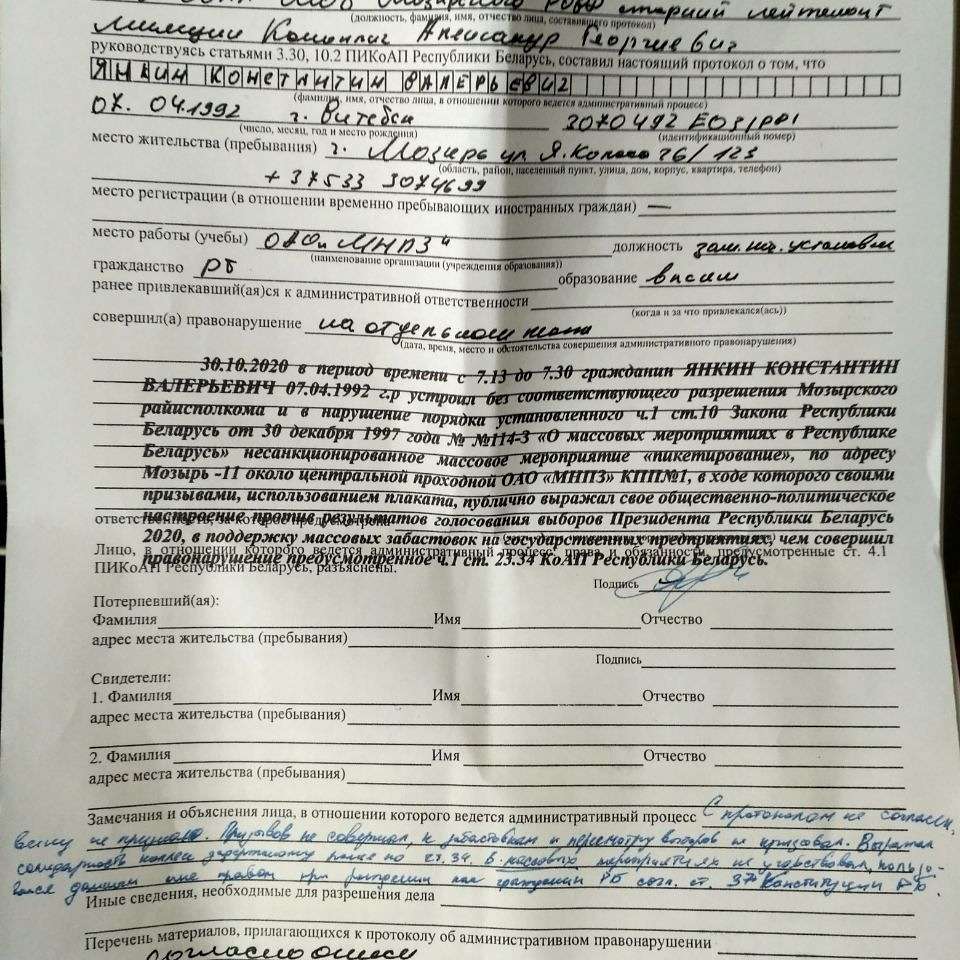 старший лейтенант
(должность, фамилия, имя, отчество лица, составившего протокол)
милиции Александр Георгиевич
руководствуясь статьями 3.30, 10.2 ПИКоАП Республики Беларусь, составил настоящий протокол о том, что
ЯНКИН КОНСТАНТИН ВАЛЕРЬЕВИЧ
(фамилия, имя, отчество лица, в отношении которого ведется административный процесс)
07.04.1992 г. Витебск 3070492
(число, месяц, год и место рождения) (идентификационный номер)
место жительства (пребывания) г. Мозырь ул Я. Коласа 26/123
(область, район, населенный пункт, улица, дом, корпус, квартира, телефон)
+37533 3074699
место регистрации (в отношении временно пребывающих иностранных граждан) —
место работы (учебы) ОАО „МНПЗ“ должность зам. нач. установки
(наименование организации (учреждения образования))
гражданство РБ образование высш
ранее привлекавший(ая)ся к административной ответственности
(когда и за что привлекался(ась))
совершил(а) правонарушение на отдельном
(дата, время, место и обстоятельства совершения административного правонарушения)
30.10.2020 в период времени с 7.13 до 7.30 гражданин ЯНКИН КОНСТАНТИН
ВАЛЕРЬЕВИЧ 07.04.1992 г.р устроил без соответствующего разрешения Мозырского
райисполкома и в нарушение порядка установленного ч.1 ст.10 Закона Республики
Беларусь от 30 декабря 1997 года № №114-З «О массовых мероприятиях в Республике
Беларусь» несанкционированное массовое мероприятие «пикетирование», по адресу
Мозырь -11 около центральной проходной ОАО «МНПЗ» КПП№1, в ходе которого своими
призывами, использованием плаката, публично выражал свое общественно-политическое
настроение против результатов голосования выборов Президента Республики Беларусь
ответственность, за которое предусмотрена
2020, в поддержку массовых забастовок на государственных предприятиях, чем совершил
Лицо, в отношении которого ведется административный процесс, права и обязанности, предусмотренные ст. 4.1
правонарушение предусмотренное ч.1 ст. 23.34 КоАП Республики Беларусь.
ПИКоАП Республики Беларусь, разъяснены.
Подпись
Потерпевший(ая):
Фамилия Имя Отчество
адрес места жительства (пребывания)
Подпись
Свидетели:
1. Фамилия Имя Отчество
адрес места жительства (пребывания)
2. Фамилия Имя Отчество
адрес места жительства (пребывания)
Замечания и объяснения лица, в отношении которого ведется административный процесс С протоколом не согласен,
вину не признаю. Призывов не совершал, к забастовкам и пересмотру выборов не призывал. Выражал
солидарность коллеге задержанному ранее по ст. 34. В массовых мероприятиях не участвовал,
данным мне правом как гражданин РБ согл. ст. 37 Конституции РБ.
Иные сведения, необходимые для разрешения дела
Перечень материалов, прилагающихся к протоколу об административном правонарушении
согласно описи